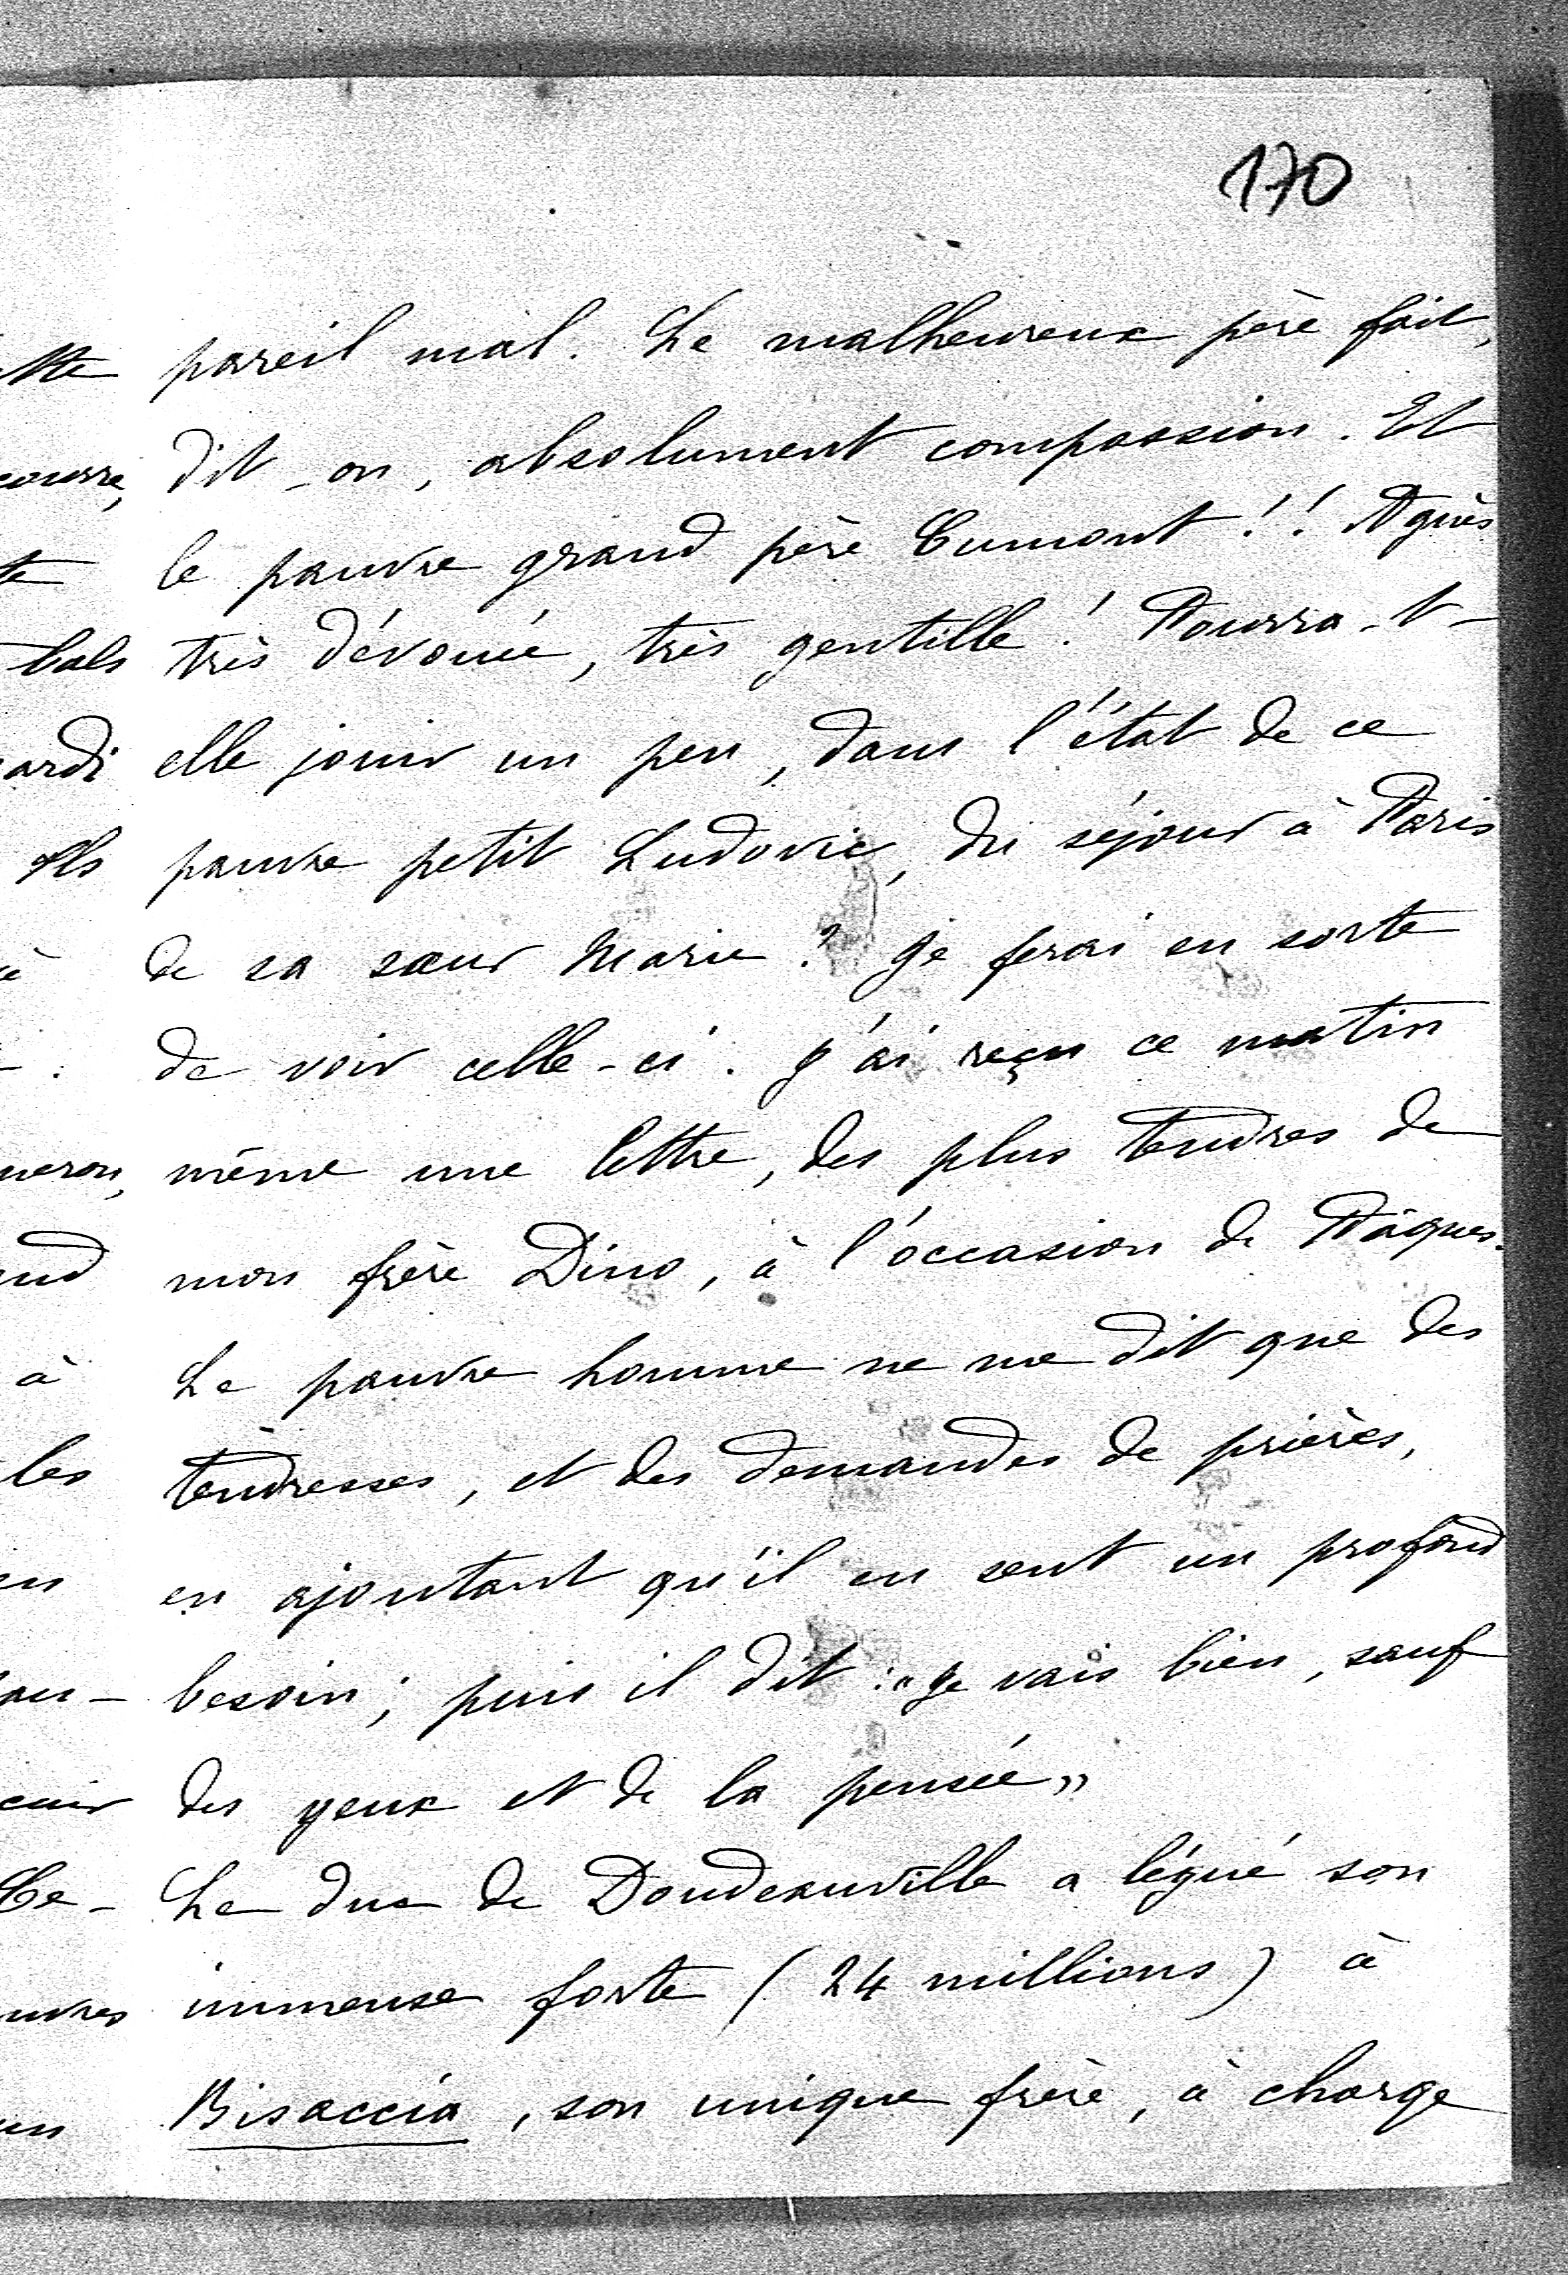 170
pareil mal. Le malheureux père fait,
dit-on, absolument compassion. Et
le pauvre grand père Cumont!! Agnès
très dévouée, très gentille! Pourra-t-
elle jouir un peu, dans l'état de ce
pauvre petit Ludovic, du séjour à Paris
de sa sœur Marie? Je ferai en sorte
de voir celle-ci. J'ai reçu ce matin
même une lettre, des plus tendres de
mon frère Dino, à l'occasion de Pâques.
Le pauvre homme ne me dit que des
tendresses, et des demandes de prières,
en ajoutant qu'il en sent un profond
besoin; puis il dit: "Je vais bien, sauf
des yeux et de la pensée"
Le duc de Doudeauville a légué son
immense forte (24 millions) à
Bisaccia, son unique frère, à charge